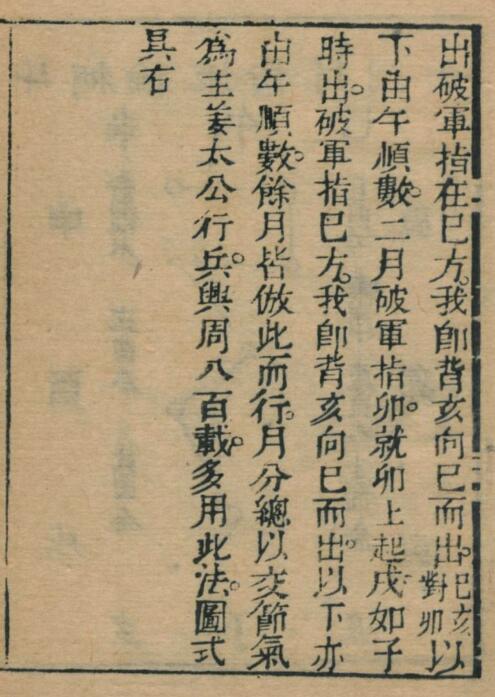 出破軍指在巳方。我卽背亥向巳而出。巳亥對卯以
下由午順數。二月破軍指卯。就卯上起戌如子
時出。破軍指巳方。我卽背亥向巳而出。以下亦
由午順數。餘月皆倣此而行。月分總以交節氣
爲主姜太公行兵。興周八百載。多用此法。圖式
具右